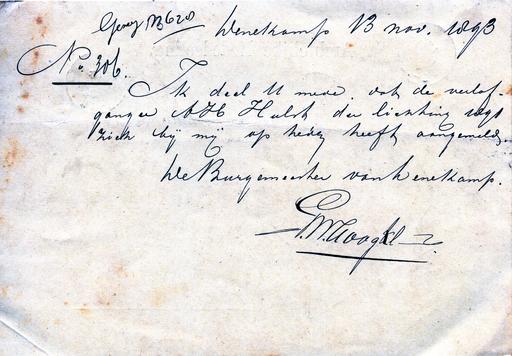 Denekamp 13 nov. 1893
No. 306.
Ik deel U mede, dat de verlof-
ganger A H Hulst der lichting 1891
zich bij mij op heden heeft aangemeld.
De Burgemeester van Denekamp.